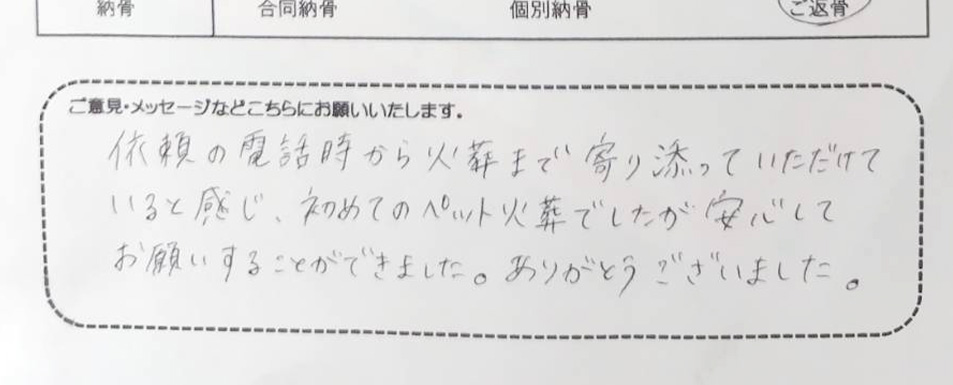 納骨 合同納骨 個別納骨 ご返骨
ご意見・メッセージなどこちらにお願いいたします。
依頼の電話時から火葬まで寄り添っていただけて
いると感じ、初めてのペット火葬でしたが安心して
お願いすることができました。ありがとうございました。